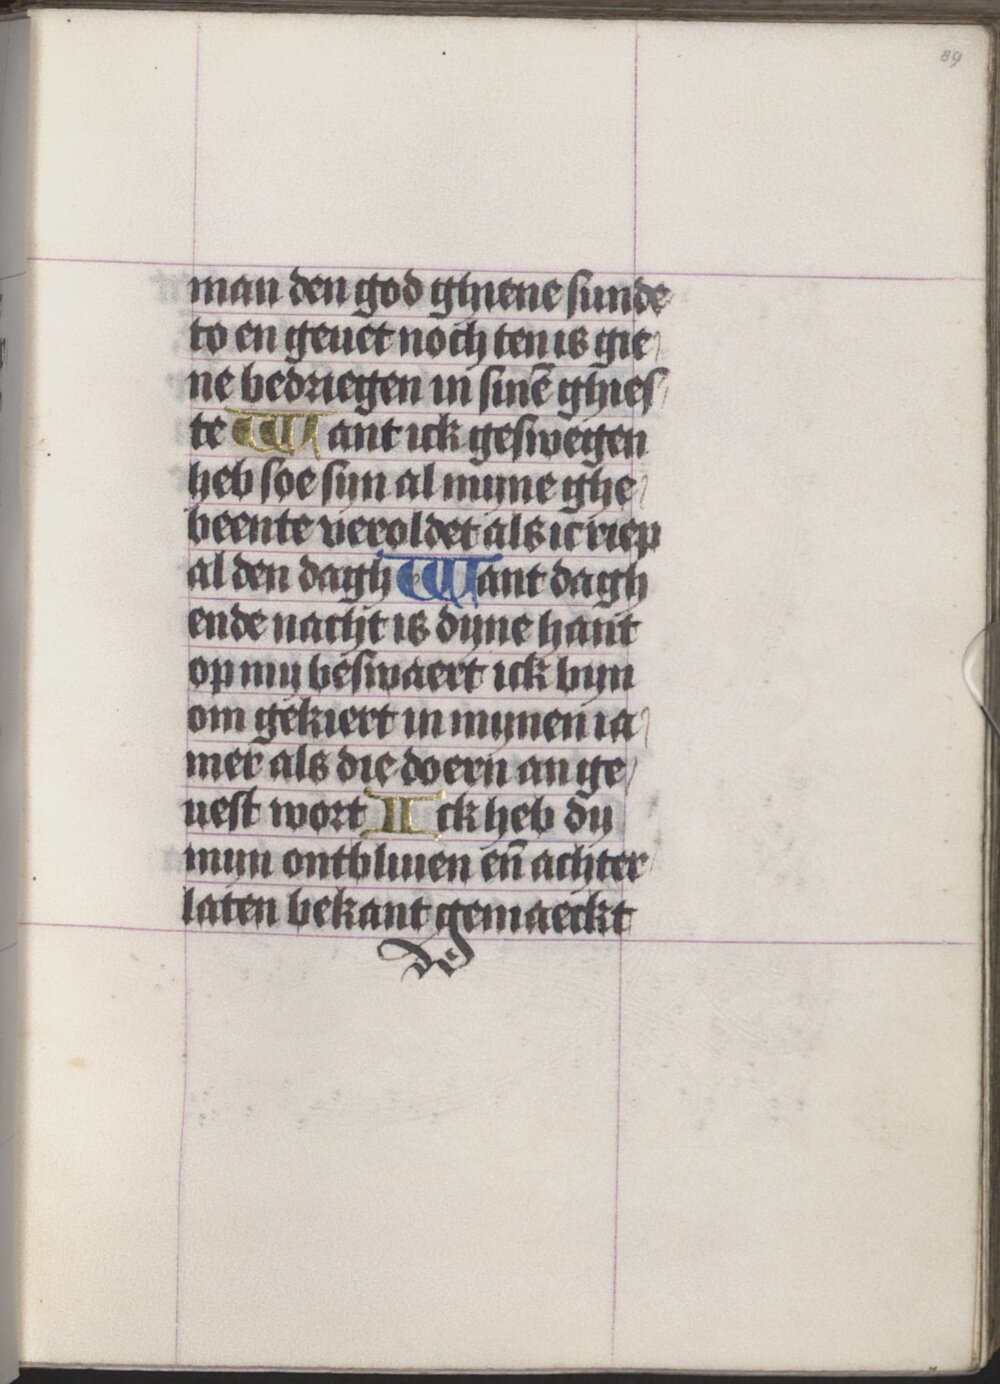 89
man den god ghiene sunde
to en geuet noch ten is gie
ne bedriegen in sinē ghies
te Want ick gesweigen
heb soe sijn al myne ghe
beente veroldet als ic riep
al den dagh Want dagh
ende nacht is dyne hant
op my beswaert ick byn
om gekiert in mynen ia
mer als die doern an ge
uest wort Ick heb dy
myn ontbliuen eñ achter
laten bekant gemaeckt